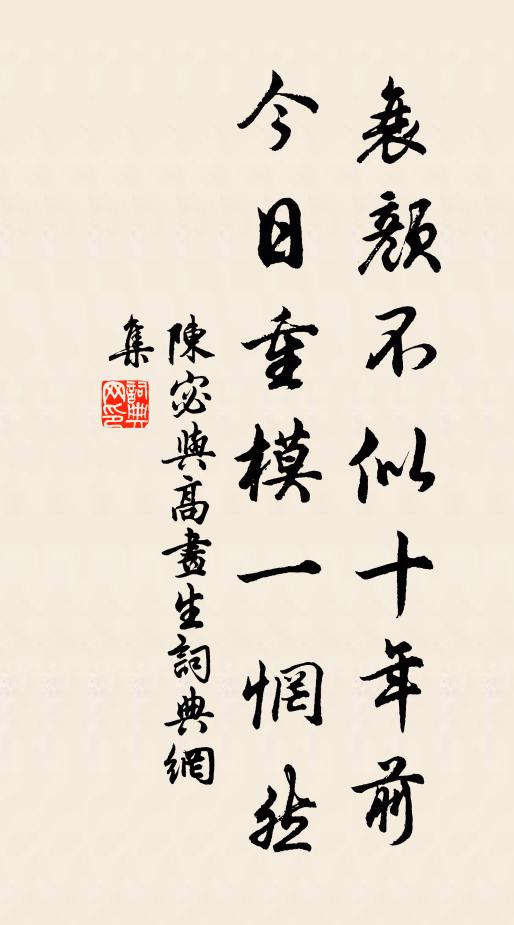 衰顏不似十年前
今日重模一惘然
陳宓與高畫生詞典網
集
詞典
网印